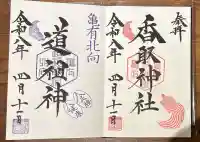 奉拝
香取神社
令和八年 四月十一日
亀有北向
道祖神
令和八年 四月十一日